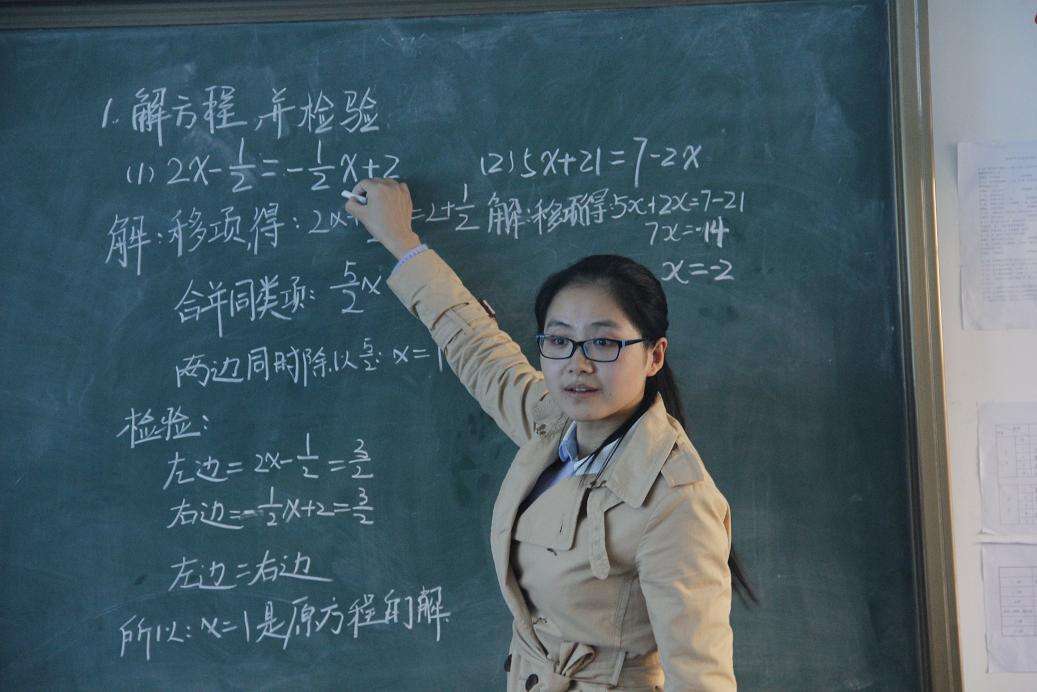 1. 解方程,并检验
(1) 2x-1/2=-1/2x+2
解:移项,得: 2x+ =2+1/2
合并同类项: 5/2x
两边同时除以5/2: x=1
检验:
左边=2x-1/2=3/2
右边=-1/2x+2=3/2
左边=右边
所以:x=1是原方程的解.
(2) 5x+21=7-2x
解:移项得:5x+2x=7-21
7x=-14
x=-2